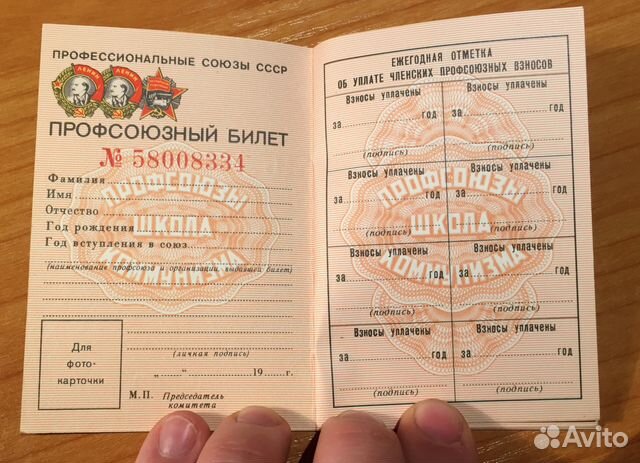 ПРОФЕССИОНАЛЬНЫЕ СОЮЗЫ СССР
ЛЕНИН ЛЕНИН
ПРОФСОЮЗНЫЙ БИЛЕТ
№ 58008334
Фамилия
Имя
Отчество
Год рождения
Год вступления в союз
(наименование профсоюза и организации, выдавшей билет)
ПРОФСОЮЗЫ
ШКОЛА
КОММУНИЗМА
Для
фото-
карточки
(личная подпись)
„ “ 19 г.
М.П. Председатель
комитета
ЕЖЕГОДНАЯ ОТМЕТКА
ОБ УПЛАТЕ ЧЛЕНСКИХ ПРОФСОЮЗНЫХ ВЗНОСОВ
Взносы уплачены Взносы уплачены
за год за год
(подпись) (подпись)
Взносы уплачены Взносы уплачены
за год за год
(подпись) (подпись)
Взносы уплачены Взносы уплачены
за год за год
(подпись) (подпись)
Взносы уплачены Взносы уплачены
за год за год
(подпись) (подпись)
ПРОФСОЮЗЫ
ШКОЛА
КОММУНИЗМА
Avito